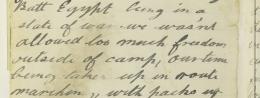 But Egypt being in a
state of war we wasn't
allowed too much freedom
outside of camp, our time
being taken up in route
marches, with packs up